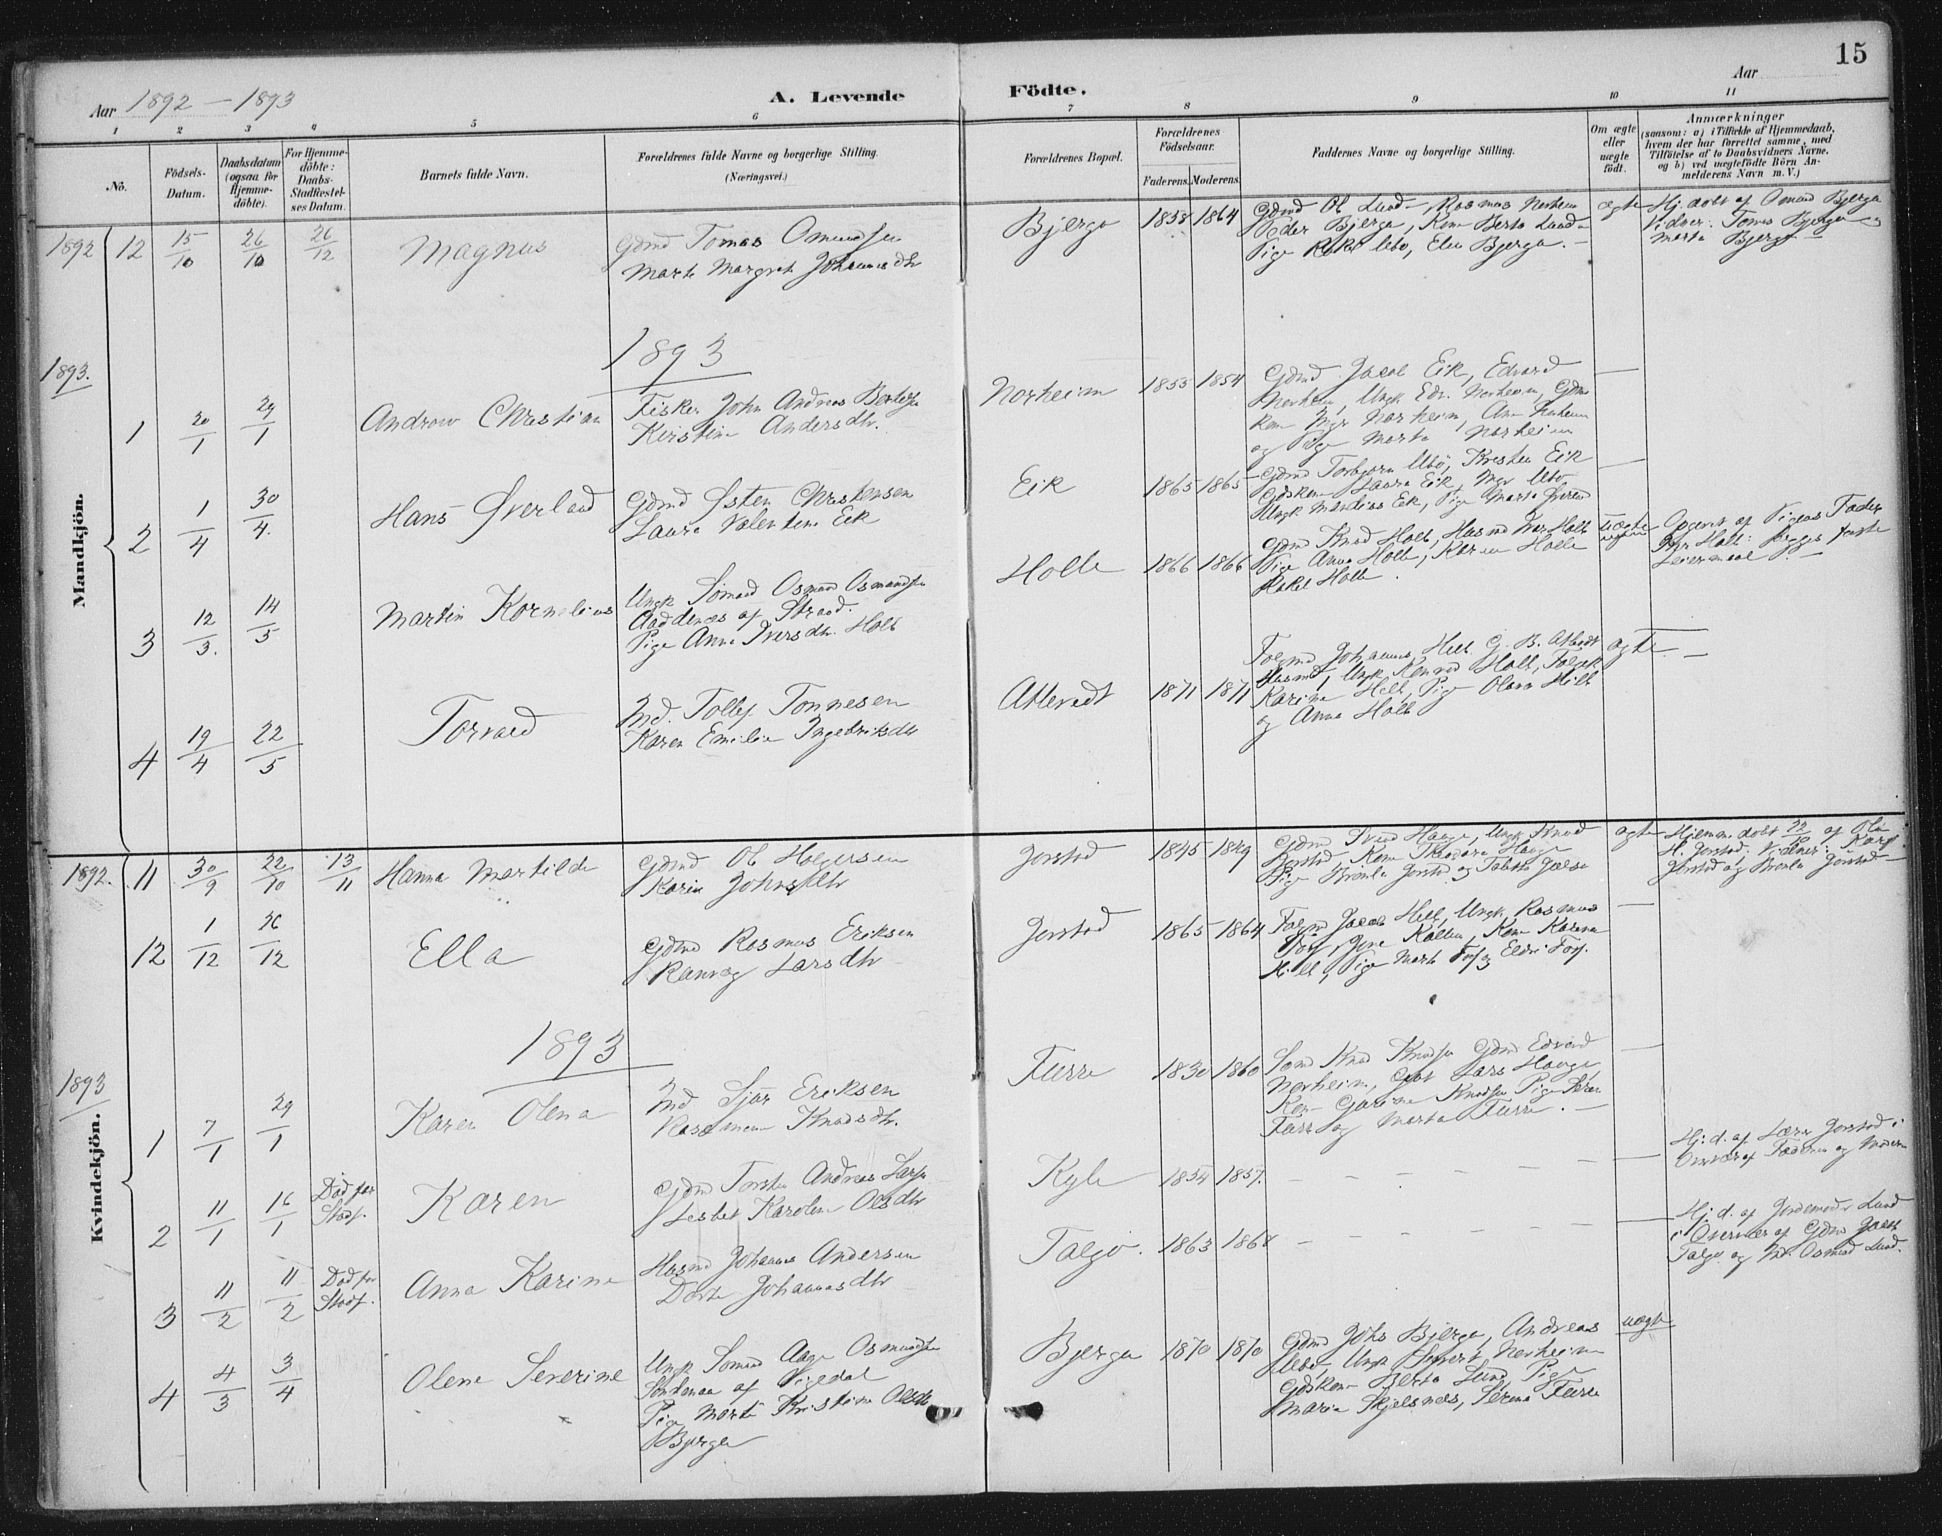 15
Aar 1892 – 1893
A. Levende
Födte.
Aar
1 2 3 4 5 6 7 8 9 10 11
No.
Födsels-Datum.
Daabsdatum (ogsaa for Hjemme-döbte).
For Hjemme-döbte: Daabs-Stadfæstel-ses Datum.
Barnets fulde Navn.
Forældrenes fulde Navne og borgerlige Stilling.
(Næringsvei.)
Forældrenes Bopæl.
Forældrenes Födselsaar.
Faderens. Moderens.
Faddernes Navne og borgerlige Stilling.
Om ægte eller uægte födt.
Anmærkninger
(saasom: a) i Tilfælde af Hjemmedaab,
hvem der har forrettet samme, med
Tilföielse af to Daabsvidners Navne.
og b) ved uægtefödte Börn An-
melderens Navn m. V.)
Mandkjön.
1892 12 15/10 26/10 26/12 Magnus
Gdmd Tomas Omundsen
Marta Margret Johannesdtr
Bjerga 1858 1864
Gdmd Ol. Lund, Rasmus Norheim
Peder Bjerga, Kone Berta Lund
Pige Rakel Ubø, Elen Bjerga. –
ægte
Hj. døbt af Omund Bjerga
Vidner: Tomas Bjerga og
Marta Bjerga
1893
1893.
1 20/1 29/1 Andrew Christian
Fisker John Andreas Bertelsen
Kirstine Andersdtr.
Norheim 1853 1854
Gdmd Jacob Eik, Edvard
Norheim, Ungk Edv. Norheim, Gdm
Kone Ingr Norheim, Ane Norheim
og Pige Marta Norheim
2 1/4 30/4. Hans Øverland
Gdmd Østen Christensen
Laura Valentine Eik
Eik 1865 1865
Gdmd Torbjørn Ubø, Kristen Eik
Gdskone Laura Eik, Ingr Ubø,
Ungk Mandius Eik, Pige Marta
3 12/3. 14/5 Martin Kornelius
Ungk Sømand Osmund Osmundsen
af Strand.
Pige Anna Iversdtr. Holte
Holte 1866 1866
Gdmd Knud Holte, Husmd Iver Holte
Pige Anna Holte, Karen Holle
Rakel Holte.
uægte
Opgivet af Pigens Fader
Iver Holte: Begges første
Leiermaal
4 19/4 22/5 Torvald
Imd. Tollef Tonnesen
Karen Emilie Ingebriktsdtr
Atlevedt 1871 1871
Johannes Helt, G. B. Atlevedt
Husmd, Ungk Konrad Holte,
Karine Helt, Pige Olava Hilt
og Anna Holte
ægte
Kvindekjön.
1892. 11 30/9 22/10 13/11 Hanna Martilde
Gdmd Ol. Holgersen
Karin Johnsdtr
Jorstad 1845 1849
Gdmd Svend Hauge, Ungk Knud
Jorstad, Kone Theodora Hauge
Pige Bronla Jorstad og Tabitta
ægte
Hjemm. døbt 22/10 af Ole
H. Jorstad, Vidner: Karen
Jorstad og Bronla Jorstad
12 1/12 26/12 Ella
Gdmd Rasmus Eriksen
Ranveg Larsdtr
Jorstad 1865 1864
Jacob Helt, Ungk Rasmus
Kone Karina
Hilt, Pige Marta og Eldri
1893
1893
1 7/1 29/1 Karen Olena
Imd Sjur Eriksen
Knudsdtr.
Furre 1830 1860
Sømd Knud Knudsen Gdmd Edvard
Norheim, Lars Hauge
Kone Gurine Knudsen Pige Karen
Furre og Marta Furre. –
2 11/1 16/1 Død før Stadf. Karen
Gdmd Torsten Andreas Larsen
Lisbet Karoline Olsdtr
Kyle 1854 1857.
Hj: d. af Lærer Jorstad i
Overvær af Faderen og Moderen
3 11/2 11/2 Død før Stadf. Anna Karine
Husmd Johannes Andersen
Dorte Johannesdtr
Talgø. 1863 1868
Hj: d. af Jordemoder Lund
i Overvær af Gdmd Jacob
Talgø og Imd Osmund Lund.
4 4/3 3/4 Olene Severine
Ungk Sømand Aage Osmundsen
af Vigedal
Pige Marta Kristine Olsdtr
Bjerga
Bjerga 1870 1870
Gdmd Johs Bjerga, Andreas
Ubø, Ungk Sivert Norheim
Gdskone Berta Lund Pige
Maria Skjelsnes, Serina Furre
uægte